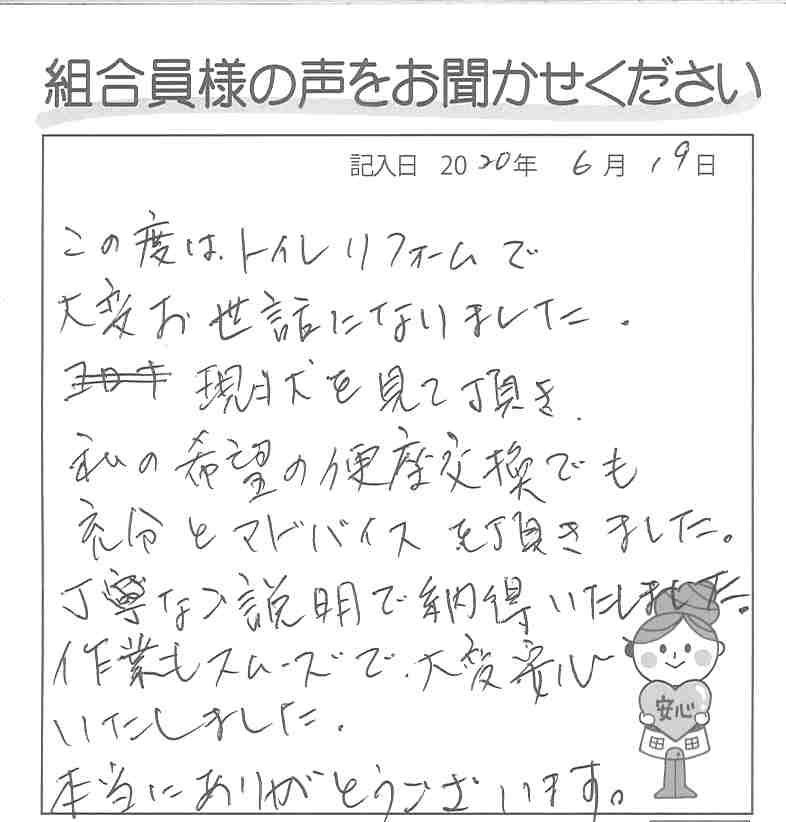 組合員様の声をお聞かせください
記入日 2020年 6月 19日
この度は、トイレリフォームで
大変お世話になりました.
現状を見て頂き、
私の希望の便座交換でも
充分とアドバイスを頂きました。
丁寧な説明で納得いたしました。
作業もスムーズで、大変安心
いたしました.
本当にありがとうございます。
安心